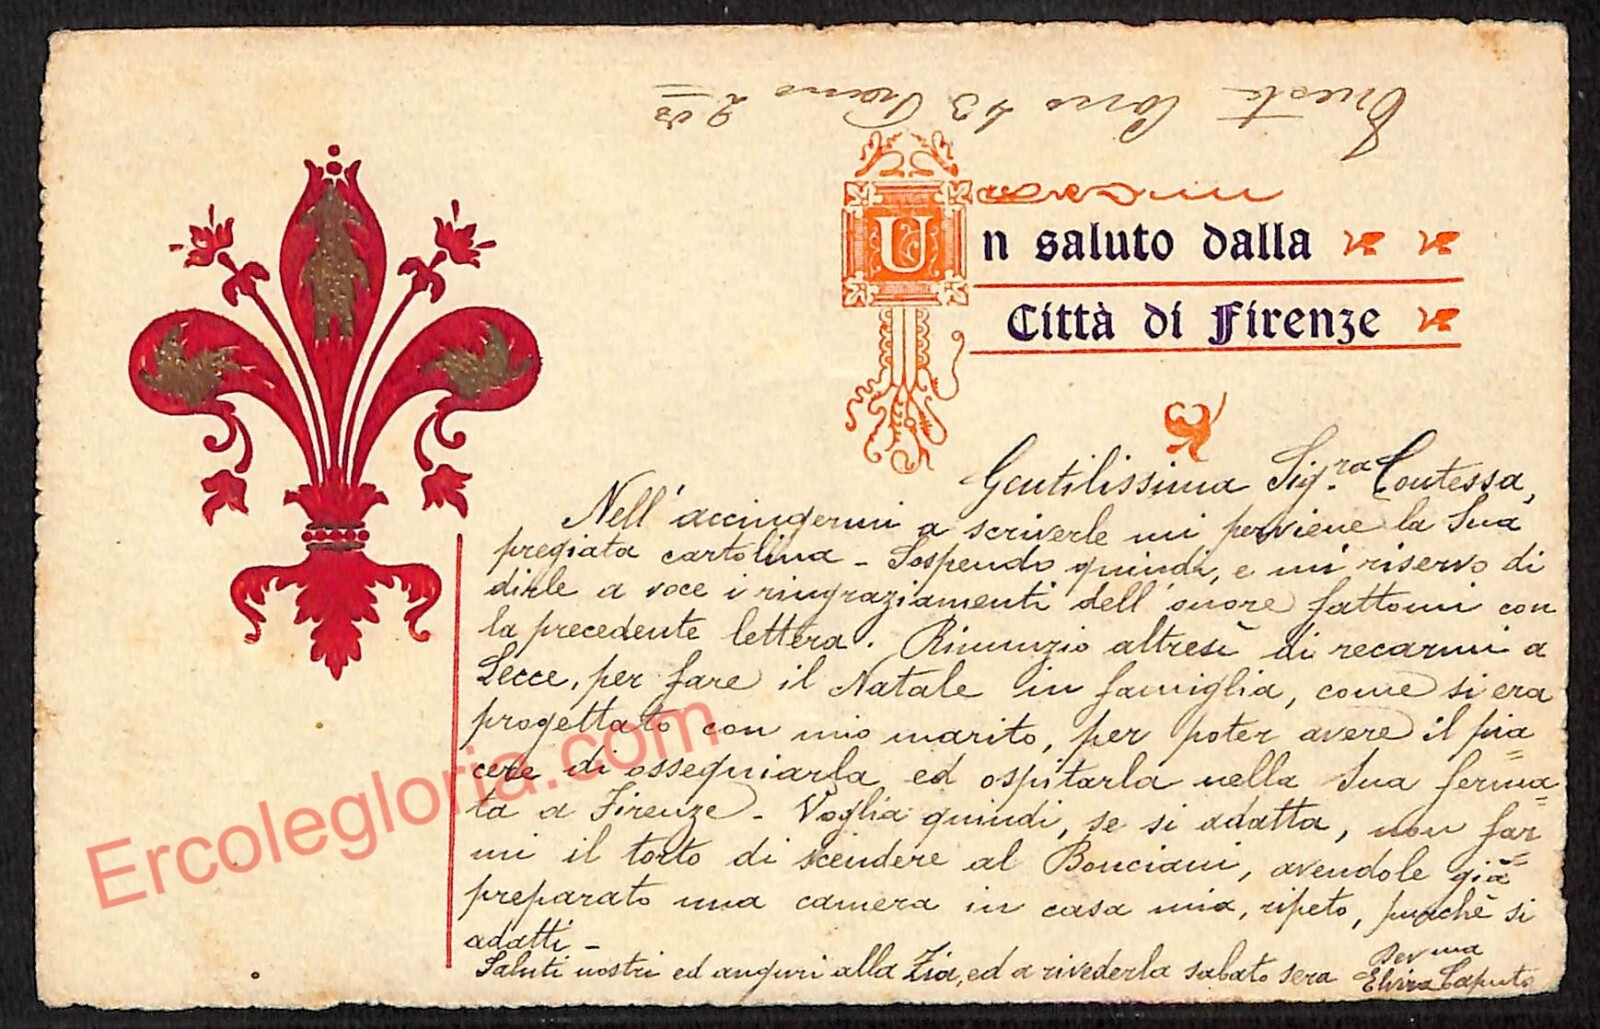 Trieste Corso 43
Un saluto dalla
Città di Firenze
Gentilissima Sig.ra Contessa,
Nell'accingermi a scriverle mi perviene la Sua
pregiata cartolina - Sospendo quindi, e mi riservo di
dirle a voce i ringraziamenti dell'onore fattomi con
la precedente lettera. Rinunzio altresì di recarmi a
Lecce, per fare il Natale in famiglia, come si era
progettato con mio marito, per poter avere il pia=
cere di ossequiarla ed ospitarla nella Sua ferma=
ta a Firenze - Voglia quindi, se si adatta, non far=
mi il torto di scendere al Bonciani, avendole già
preparato una camera in casa mia, ripeto, purchè si
adatti -
Saluti nostri ed auguri alla Zia, ed a rivederla sabato sera
Dev.ma
Elvira Caputo
Ercolegloria.com